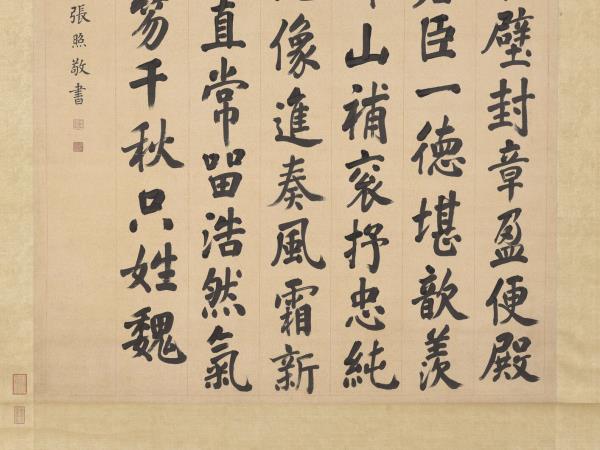 璧封章盈便殿
臣一德堪歆羨
山補袞抒忠純
像進奏風霜新
直常留浩然氣
笏千秋只姓魏
張照敬書